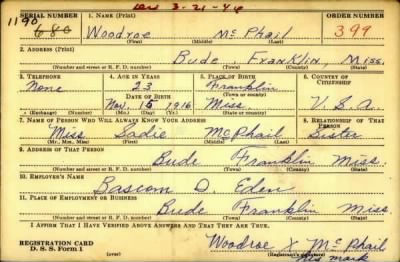 Dev 3-21-46
SERIAL NUMBER 1. NAME (Print) ORDER NUMBER
1190
680 Woodroe McPhail 399
(First) (Middle) (Last)
2. ADDRESS (Print)
Bude Franklin, Miss.
(Number and street or R. F. D. number) (Town) (County) (State)
3. TELEPHONE 4. AGE IN YEARS 5. PLACE OF BIRTH 6. COUNTRY OF CITIZENSHIP
None 23 Franklin
DATE OF BIRTH (Town or county)
Nov. 15 1916 Miss. U.S.A.
(Exchange) (Number) (Mo.) (Day) (Yr.) (State or country)
7. NAME OF PERSON WHO WILL ALWAYS KNOW YOUR ADDRESS 8. RELATIONSHIP OF THAT PERSON
Miss Sadie McPhail Sister
(Mr., Mrs., Miss) (First) (Middle) (Last)
9. ADDRESS OF THAT PERSON
Bude Franklin Miss.
(Number and street or R. F. D. number) (Town) (County) (State)
10. EMPLOYER'S NAME
Bascom D. Eden
11. PLACE OF EMPLOYMENT OR BUSINESS
Bude Franklin Miss
(Number and street or R. F. D. number) (Town) (County) (State)
I AFFIRM THAT I HAVE VERIFIED ABOVE ANSWERS AND THAT THEY ARE TRUE.
REGISTRATION CARD
D. S. S. Form 1
Woodroe X McPhail
(Registrant's signature)
his mark